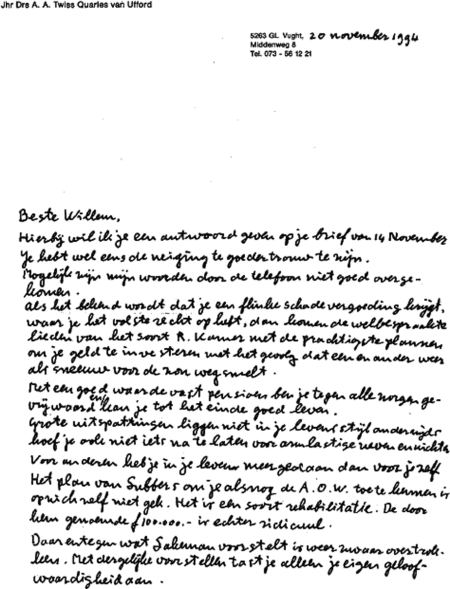 Jhr Drs A. A. Twiss Quarles van Ufford
5263 GL Vught, 20 november 1994
Middenweg 8
Tel. 073 - 56 12 21
Beste Willem,
Hierbij wil ik je een antwoord geven op je brief van 14 November
Je hebt wel eens de neiging te goeder trouw te zijn.
Mogelijk zijn mijn woorden door de telefoon niet goed overge-
komen.
als het bekend wordt dat je een flinke schadevergoeding krijgt,
waar je het volste recht op hebt, dan komen de welbespraakte
lieden van het soort R. Kamer met de prachtigste plannen
om je geld te investeren met het gevolg dat een en ander weer
als sneeuw voor de zon wegsmelt.
Met een goed waardevast pensioen ben je tegen alle zorgen ge-
vrijwaard en kan je tot het einde goed leven.
Grote uitspattingen liggen niet in je levensstijl anderzijds
hoef je ook niet iets na te laten voor armlastige neven en nichten
Voor anderen heb je in je leven meer gedaan dan voor jezelf
Het plan van Subbers om je alsnog de A.O.W. toe te kennen is
op zich zelf niet gek. Het is een soort rehabilitatie. De door
hem genoemde ƒ 100.000.- is echter ridicuul.
Daarentegen wat Sakeman voorstelt is weer zwaar overtrok-
ken. Met dergelijke voorstellen tast je alleen je eigen geloof-
waardigheid aan.